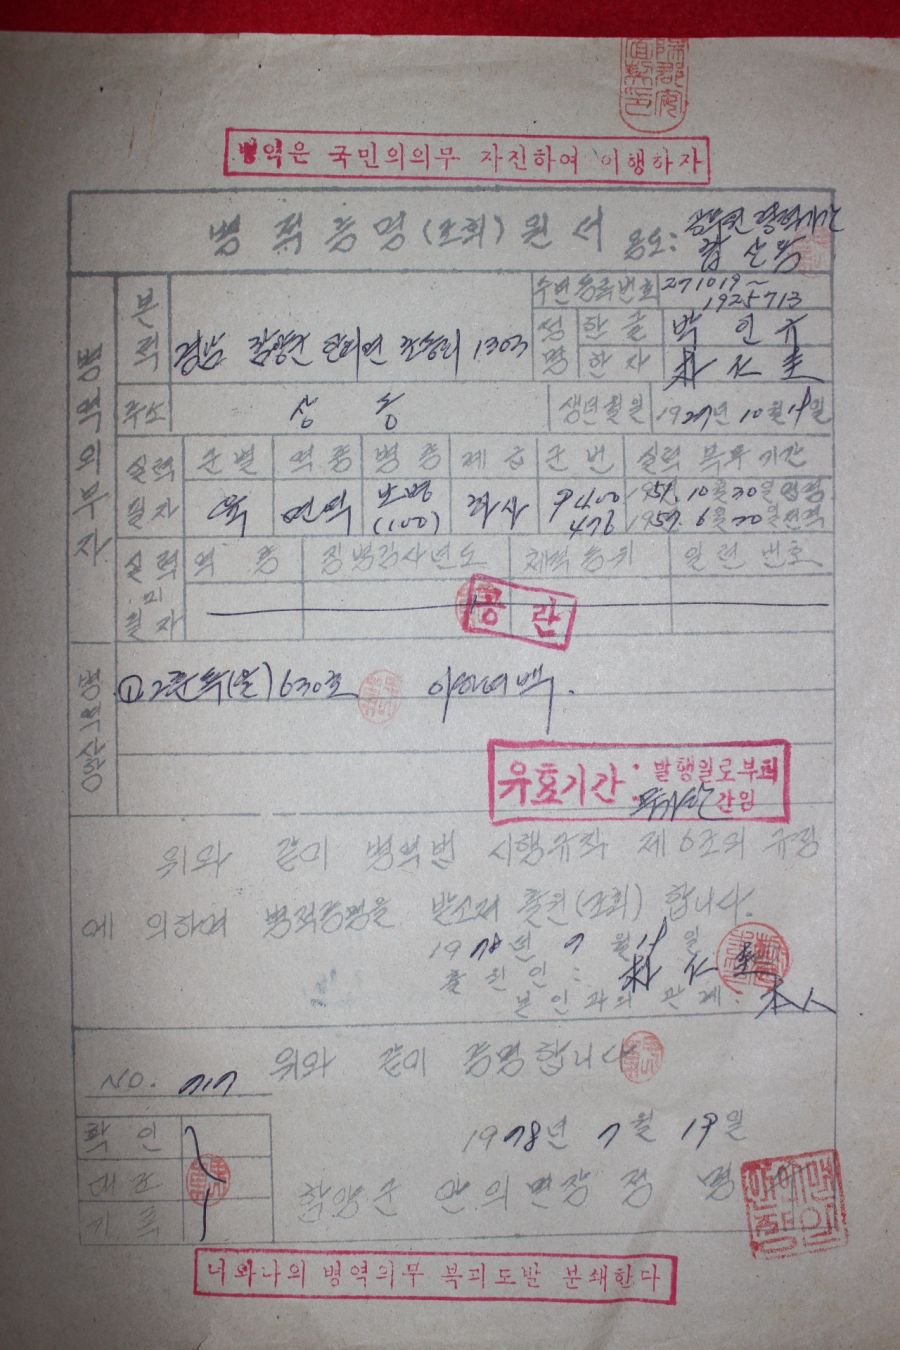 병역은 국민의의무 자진하여 이행하자
병적증명(조회)원서 용도: 공무원
자부의무원병
본적
경남 함양군 안의면 1303
주민등록번호 271019~
1925713
성명 한글 박인규
한자 朴仁圭
주소 상동
생년월일 1927년 10월 19일
실력필자 군별 역종 병종 계급 군번 실력복무기간
육 보병 (100) 하사 9400 476
195 년 10월 30일 입영
195 년 6월 30일 전역
실력미필자 역종 징병검사년도 체격등위 일련번호
공란
① 2훈육(을)630호 이하여백.
유효기간: 발행일로부터
간임
위와 같이 병역법 시행규칙 제6조의 규정
에 의하여 병적증명을 발소저 출원(조회)합니다.
1978년 7월 19일
출원인: 朴仁圭
본인과의 관계: 本人
위와 같이 증명합니다
NO. 717
1978년 7월 19일
확인
대조
기록
함양군 안의면장 정
너와나의 병역의무 북괴도발 분쇄한다